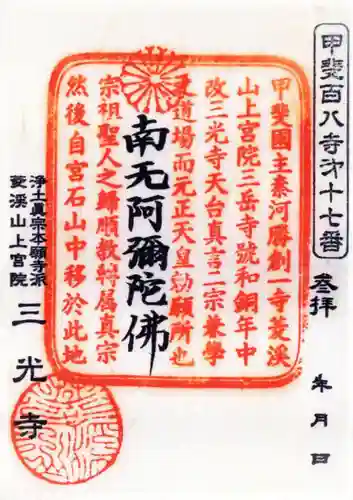 甲斐百八寺第十七番
参拝 年 月 日
甲斐國主秦河勝創一寺菱渓
山上宮院三岳寺號和銅年中
改三光寺天台真言二宗兼學
道場而元正天皇勅願所也
宗祖聖人之歸順教轉属真宗
然後自宮石山中移於此地
南无阿彌陀佛
浄土真宗本願寺派
菱渓山上宮院
三光寺